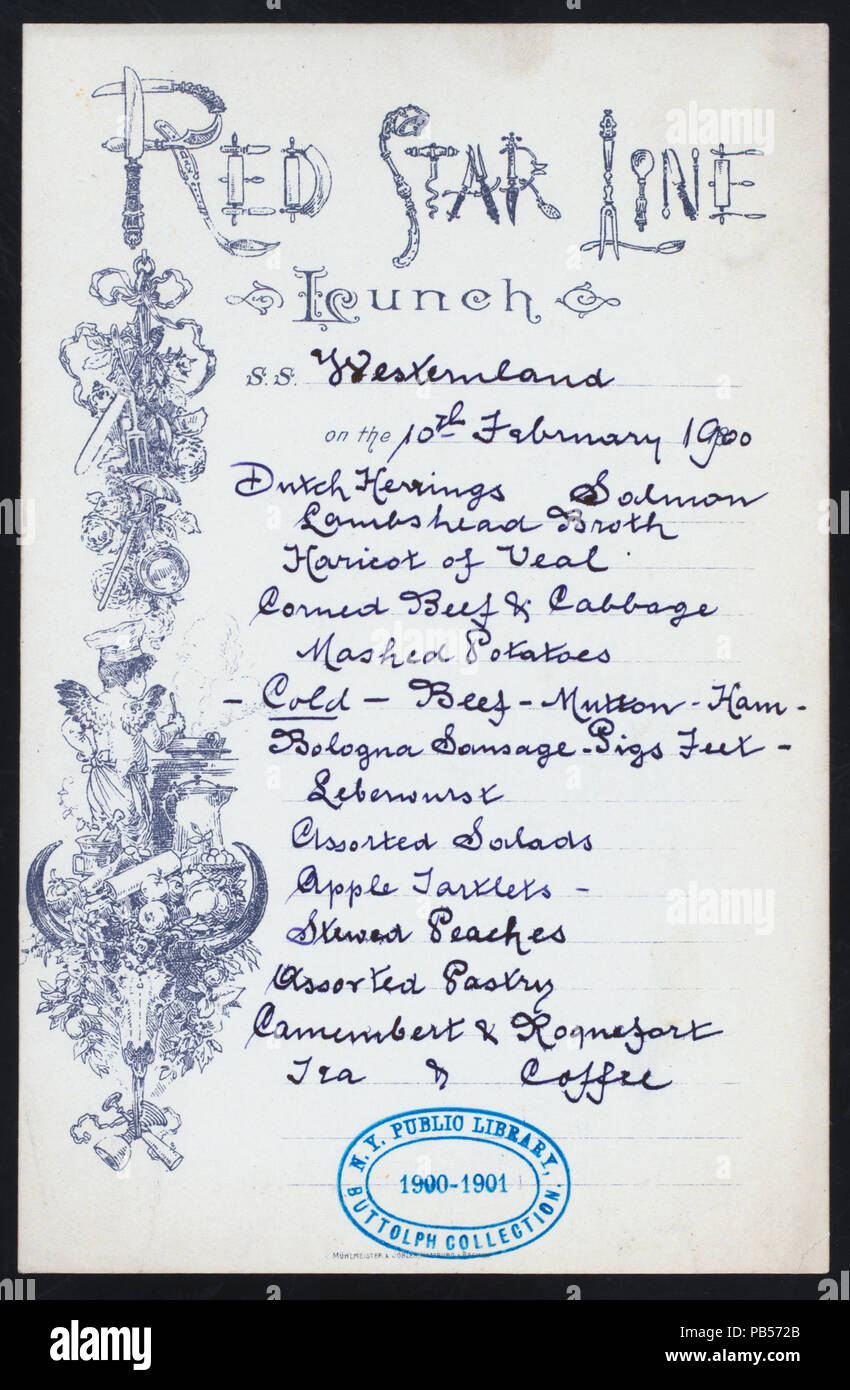 RED STAR LINE
Lunch
S.S. Westernland
on the 10th February 1900
Dutch Herrings Salmon
Lambshead Broth
Haricot of Veal
Corned Beef & Cabbage
Mashed Potatoes
- Cold - Beef - Mutton - Ham -
Bologna Sausage - Pigs Feet -
Leberwurst
Assorted Salads
Apple Tartlets -
Stewed Peaches
Assorted Pastry
Camembert & Roquefort
Tea & Coffee
N.Y. PUBLIC LIBRARY,
1900-1901
BUTTOLPH COLLECTION.
MÜHLMEISTER & JOHLER, HAMBURG & BREMEN
alamy
alamy
Image ID: PB572B
www.alamy.com